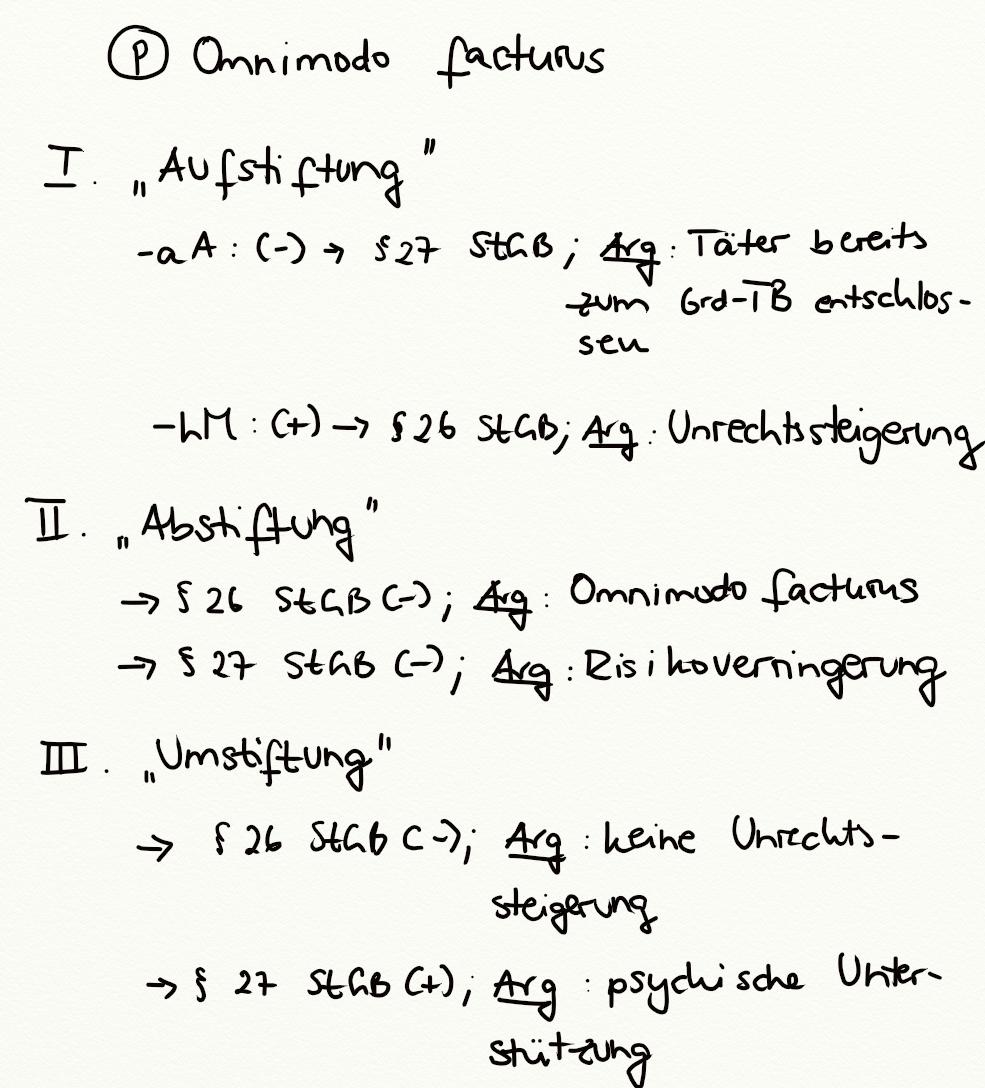 Ⓟ Omnimodo facturus
I. „Aufstiftung"
- a A : (-) → § 27 StGB ; Arg : Täter bereits
zum Grd-TB entschlos-
sen
- hM : (+) → § 26 StGB; Arg : Unrechtssteigerung
II. „Abstiftung"
→ § 26 StGB (-) ; Arg : Omnimodo facturus
→ § 27 StGB (-) ; Arg : Risikoverringerung
III. „Umstiftung"
→ § 26 StGB (-); Arg : keine Unrechts-
steigerung
→ § 27 StGB (+) ; Arg : psychische Unter-
stützung